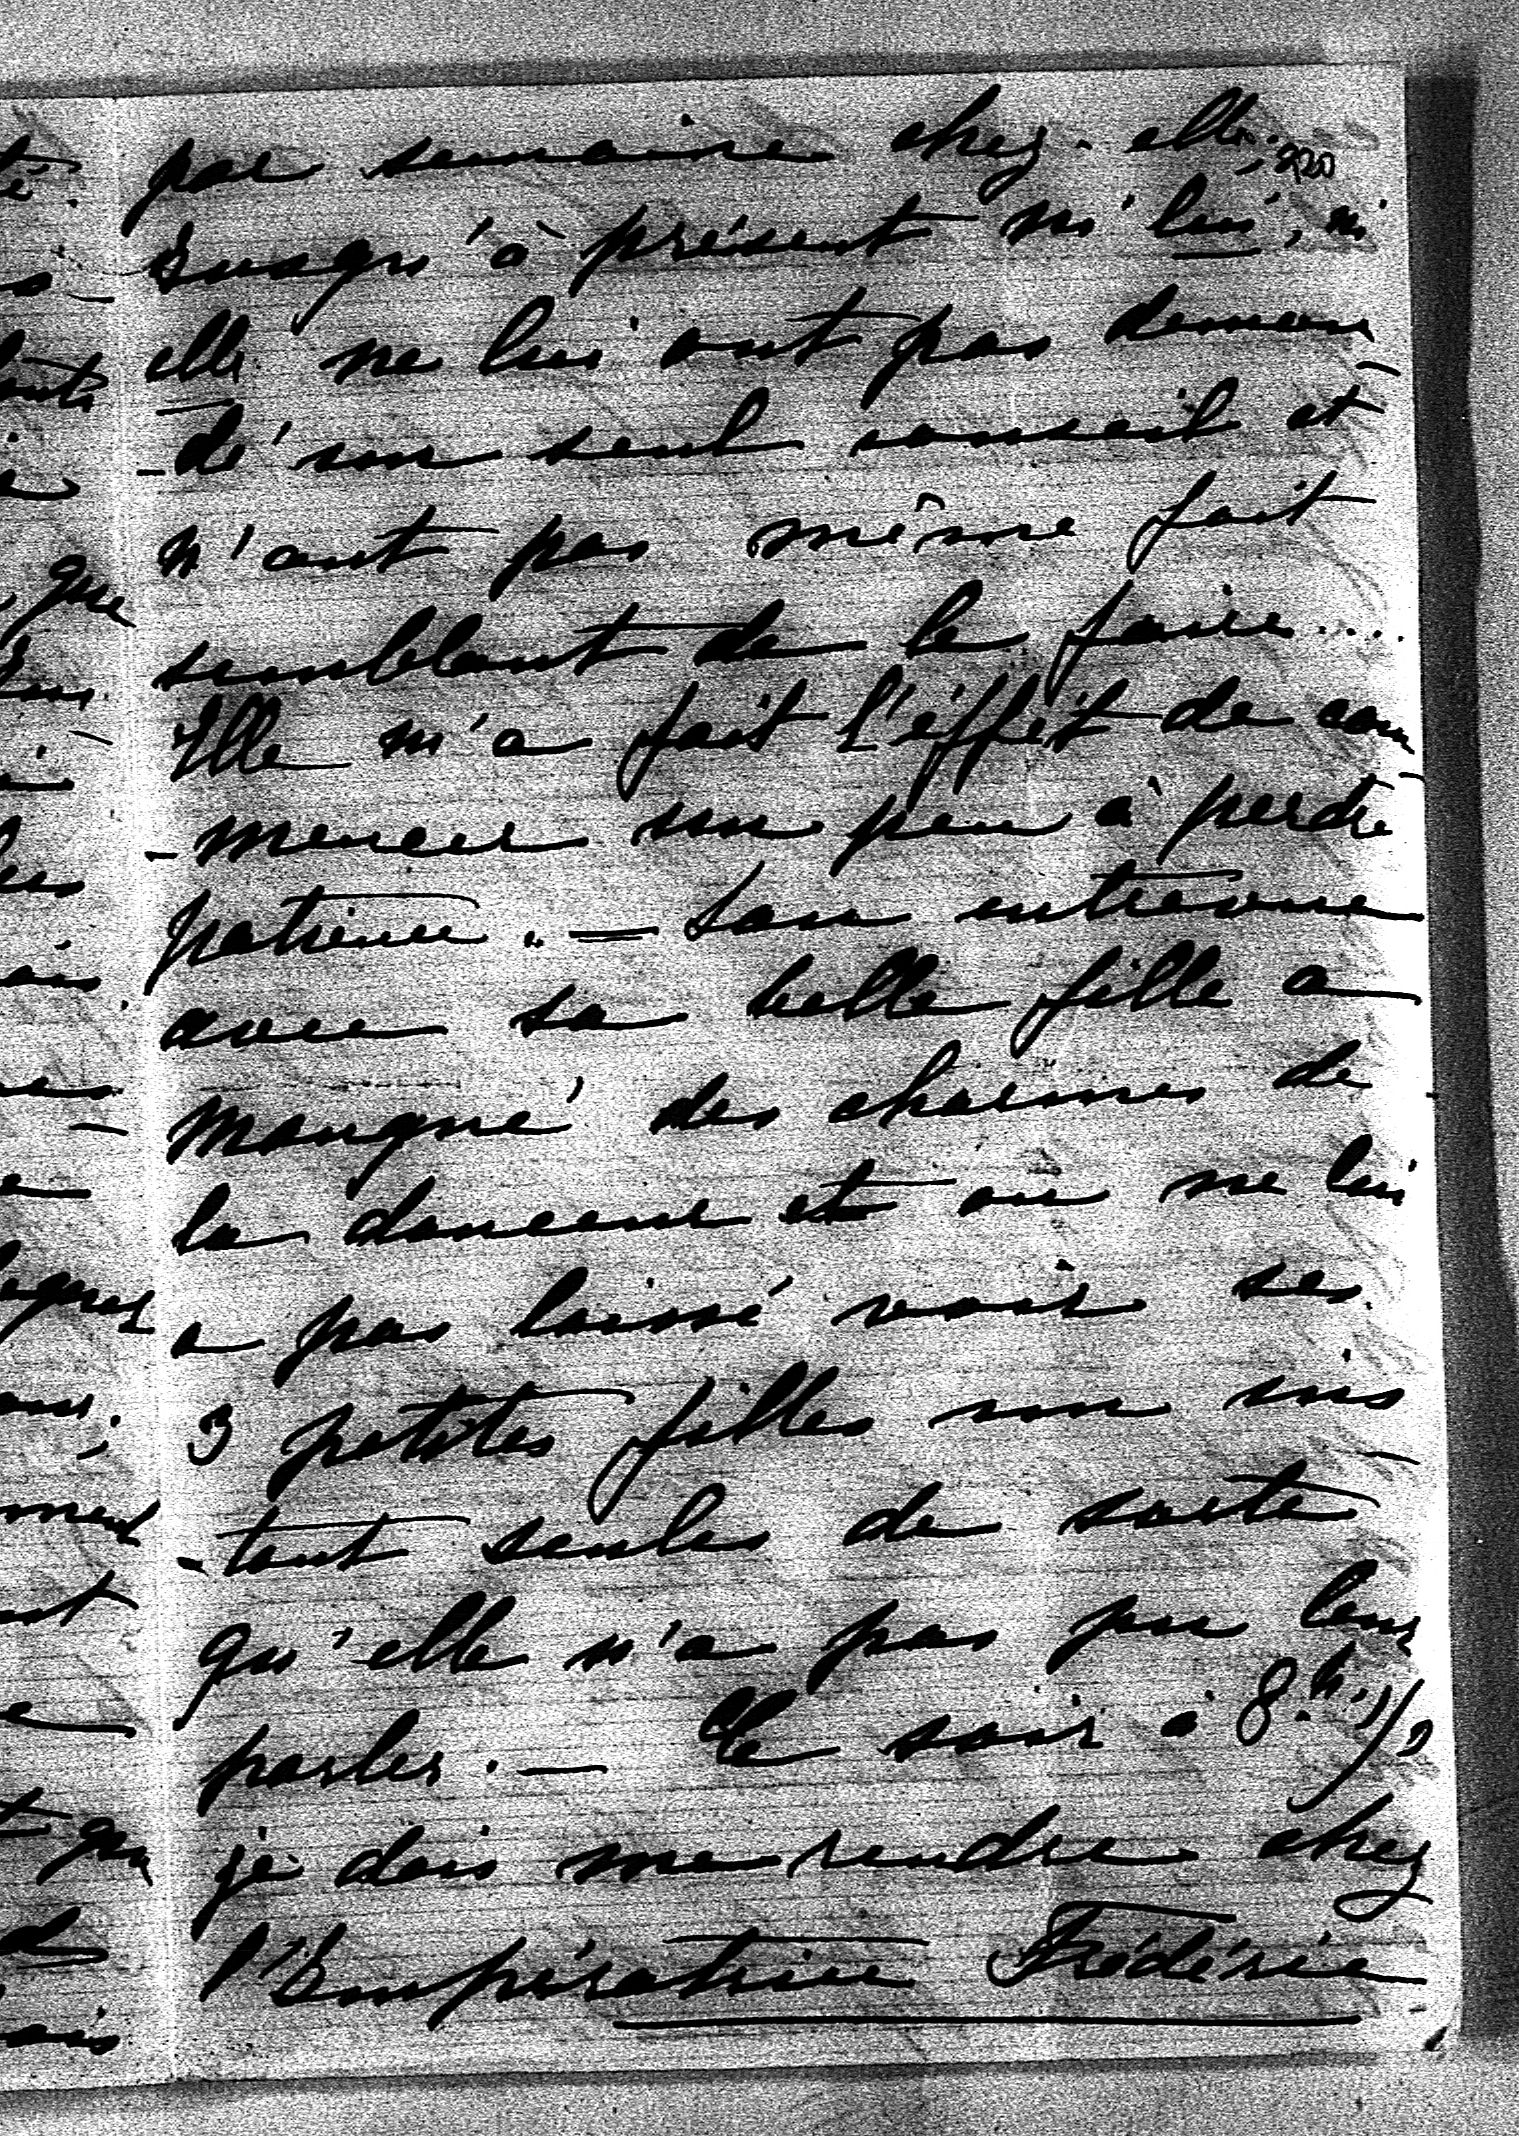 par semaine chez elle. 320
Jusqu'à présent ni lui, ni
elle ne lui ont pas deman
-dé un seul conseil et
n'ont pas même fait
semblant de le faire....
Elle m'a fait l'éffet de com
-mencer un peu à perdre
patience. — Son entrevue
avec sa belle fille a
manqué des charmes de
la douceur et on ne lui
a pas laissé voir ses
3 petites filles un ins
-tant seules de sorte
qu'elle n'a pas pu leur
parler. — Ce soir à 8.h. 1/2
je dois me rendre chez
l'Impératrice Frédéric